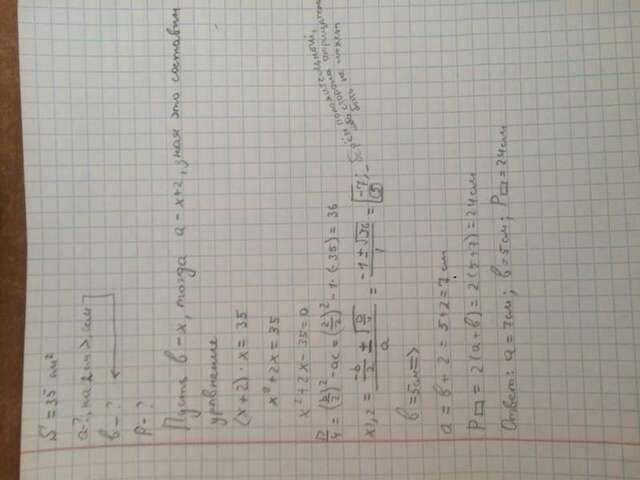 S = 35 см²
a - ?, на 2 см >, чем
в - ?
P - ?
Пусть в - x, тогда a - x+2, зная это составим
уравнение
(x + 2) · x = 35
x² + 2x = 35
x² + 2x - 35 = 0
D/4 = (b/2)² - ac = (2/2)² - 1 · (-35) = 36
x1,2 = (-b/2 ± √(D/4))/a = (-1 ± √36)/1 = [-7; 5 - берём положительный,
сторона отрицательной
быть не может
в = 5 см =>
a = в + 2 = 5 + 2 = 7 см
P▭ = 2(a + в) = 2(5 + 7) = 24 см
Ответ: a = 7 см; в = 5 см; P▭ = 24 см